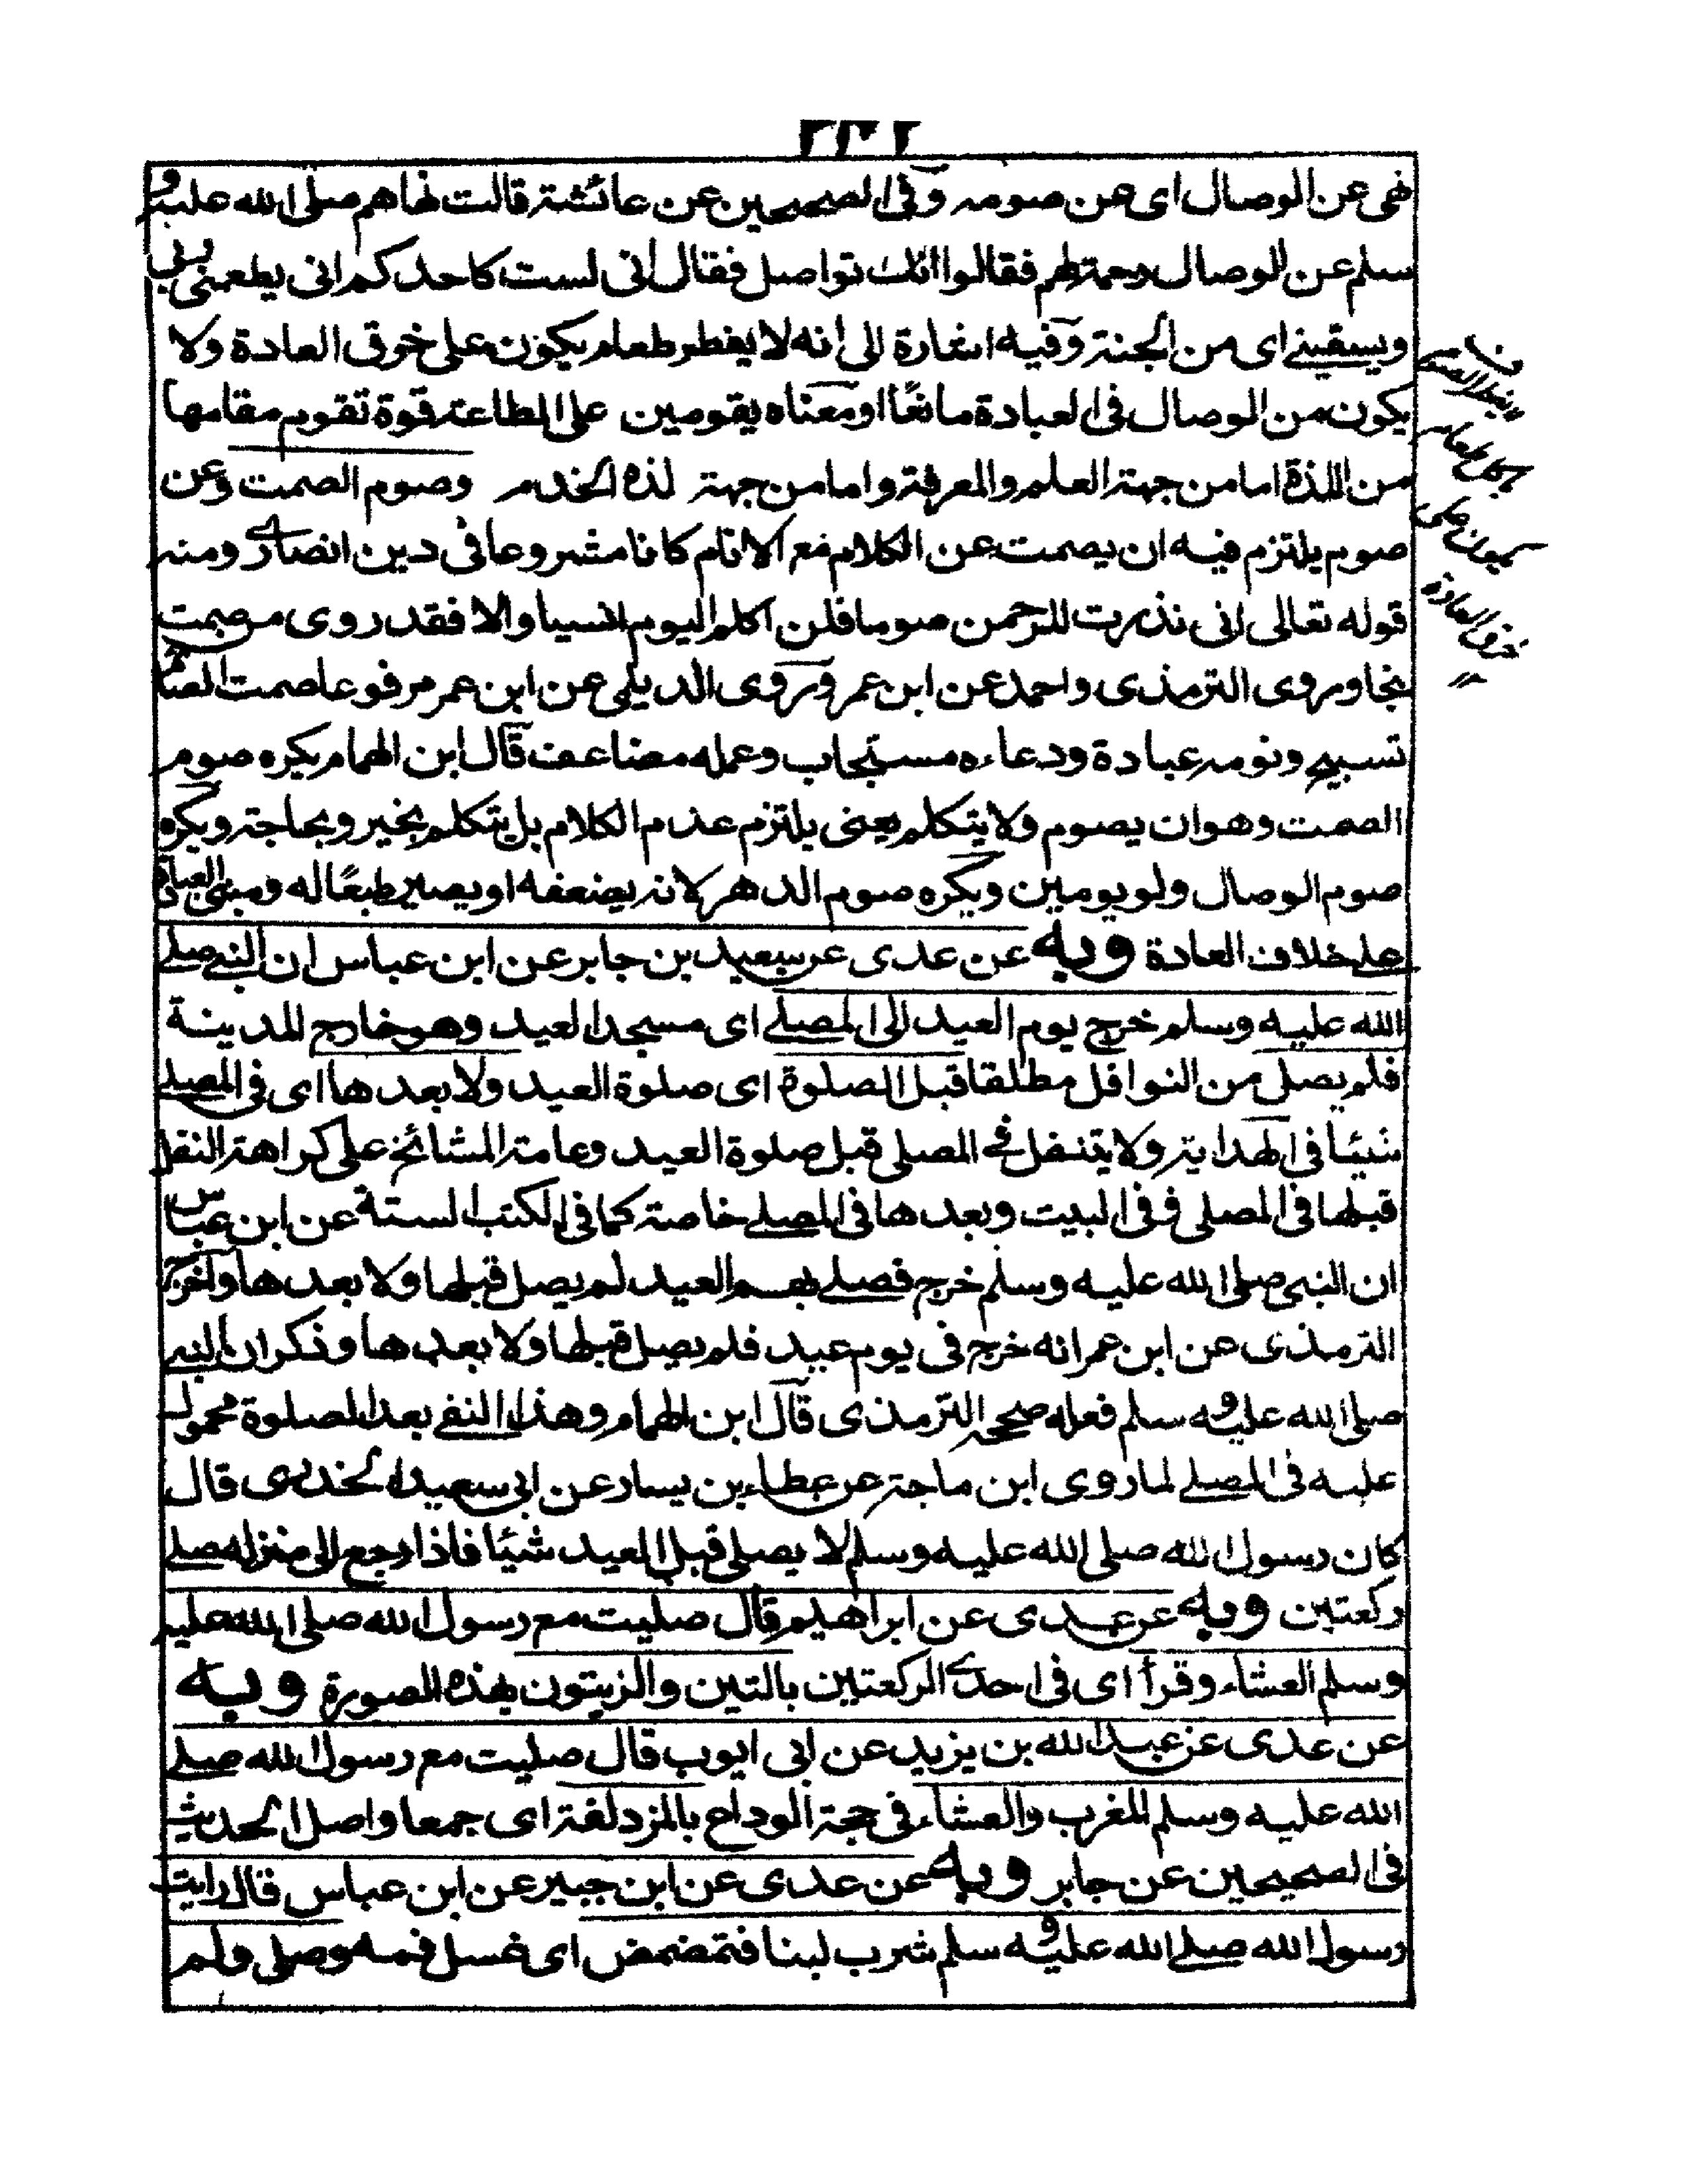 نهى عن الوصال اى عن صومه وفى الصحيحين عن عائشة قالت نهاهم صلى الله عليه و
سلم عن الوصال رحمة لهم فقالوا انك تواصل فقال انى لست كاحدكم انى يطعمنى ربى
ويسقينے اى من الجنة وفيه اشارة الى انه لا يفطر طعام يكون على خرق العادة ولا
يكون من الوصال فى العبادة مانعًا او معناه يقومين على الطاعة قوة تقوم مقامها
من اللذة اما من جهة العلم والمعرفة واما من جهة لذة الخدم وصوم الصمت وعن
صوم يلتزم فيه ان يصمت عن الكلام مع الانام كانا مشروعا فى دين انصارى ومنه
قوله تعالى انى نذرت للرحمن صوما فلن اكلم اليوم انسيا والا فقد روى من صمت
نجا وروى الترمذى واحمد عن ابن عمر وروى الديلمى عن ابن عمر مرفوعا صمت الصائم
تسبيح ونومه عبادة ودعاءه مستجاب وعمله مضاعف قال ابن الهمام يكره صوم
الصمت وهو ان يصوم ولا يتكلم يعنى يلتزم عدم الكلام بل يتكلم بخير وبحاجة ويكره
صوم الوصال ولو يومين ويكره صوم الدهر لانه يضعفه او يصير طبعًا له ومبنى العبادة
على خلاف العادة وبه عن عدى عن سعيد بن جابر عن ابن عباس ان النبے صلے
الله عليه وسلم خرج يوم العيد الى المصلے اى مسجد العيد وهو خارج المدينة
فلم يصلى من النوافل مطلقا قبل الصلوة اى صلوة العيد ولا بعدها اى فى المصلے
شيئا فى الهداية ولا يتنفل فى المصلى قبل صلوة العيد وعامة المشائخ على كراهة النفل
قبلها فى المصلى وفى البيت وبعدها فى المصلے خاصة كما فى الكتب الستة عن ابن عباس
ان النبى صلى الله عليه وسلم خرج فصلے بهم العيد لم يصل قبلها ولا بعدها واخرج
الترمذى عن ابن عمر انه خرج فى يوم عيد فلم يصل قبلها ولا بعدها وذكر ان النبے
صلى الله عليه و سلم فعله صححه الترمذى قال ابن الهمام وهذا النفے بعد الصلوة محمول
عليه فى المصلے لما روى ابن ماجة عن عطاء بن يسار عن ابى سعيد الخدرى قال
كان رسول الله صلى الله عليه وسلم لا يصلى قبل العيد شيئا فاذا رجع الى منزله صلے
ركعتين وبه عن عدى عن ابراهيم قال صليت مع رسول الله صلى الله عليه
وسلم العشاء وقرأ اى فى احدى الركعتين بالتين والزيتون بهذه الصورة وبه
عن عدى عن عبد الله بن يزيد عن ابى ايوب قال صليت مع رسول الله صلے
الله عليه وسلم المغرب والعشاء فى حجة الوداع بالمزدلفة اى جمعا واصل الحديث
فى الصحيحين عن جابر وبه عن عدى عن ابن جبير عن ابن عباس قال رايت
رسول الله صلے الله عليه و سلم شرب لبنا فتمضمض اى غسل فمه وصلى ولم
لا يفطر الصوم
بكل طعام
يكون على
خرق العادة